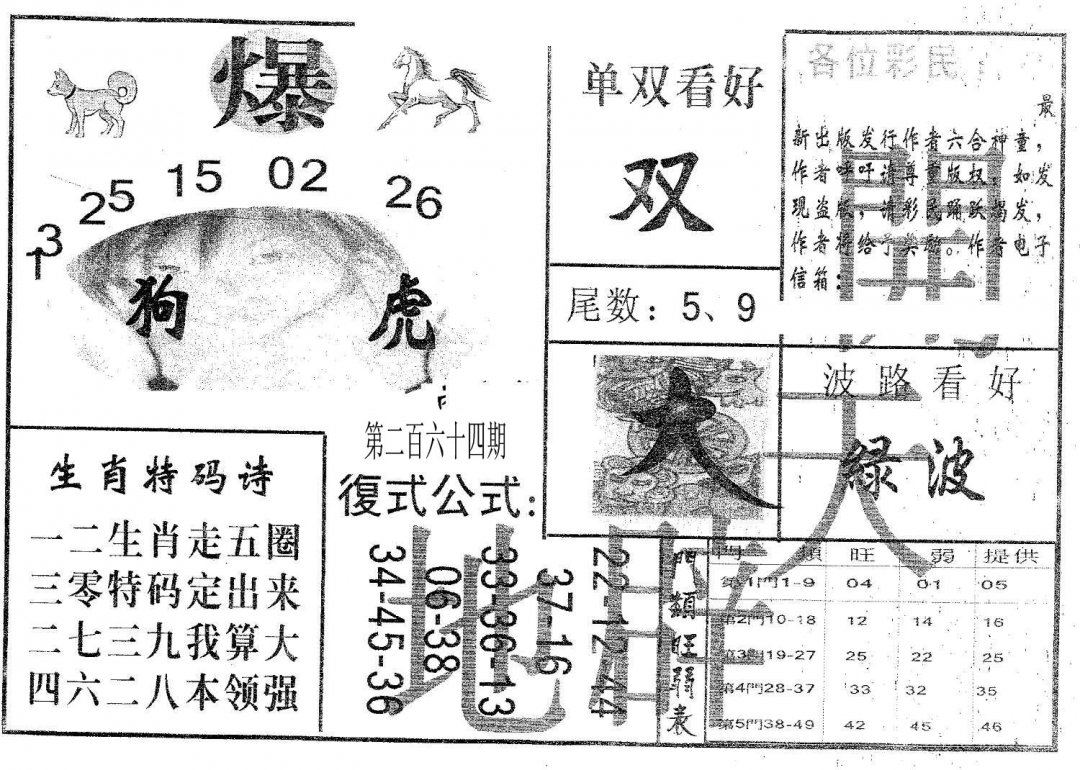 爆
25 15 02 26
3
狗 虎
生肖特码诗
一二生肖走五圈
三零特码定出来
二七三九我算大
四六二八本领强
第二百六十四期
復式公式：
34-45-36
06-38
33-36-13
37-16
22-12-44
单双看好
双
尾数：5、9
大
各位彩民：
最
新出版发行作者六合神童，
作者呼吁请尊重版权，如发
现盗版，请彩民踊跃揭发，
作者将给予奖励。作者电子
信箱：
波路看好
緑波
門類旺弱表
門類 旺 弱 提供
第1門1-9 04 01 05
第2門10-18 12 14 16
第3門19-27 25 22 25
第4門28-37 33 32 35
第5門38-49 42 45 46
天
地